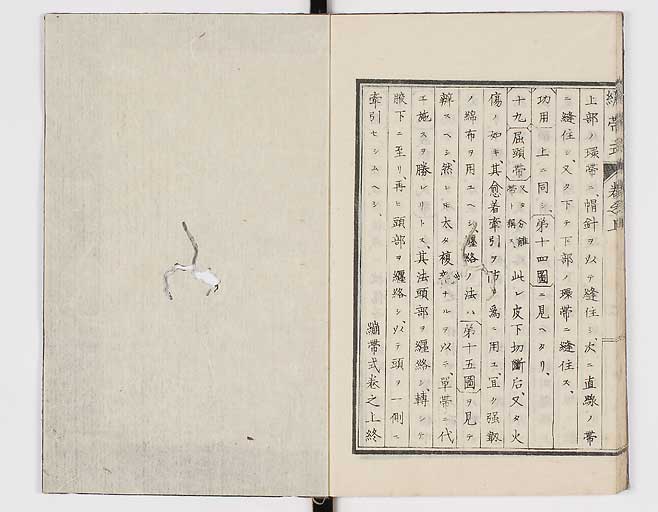 繃帯式 卷之上
上部ノ環帯ニ、帽針ヲ以テ縫住シ、次ニ直線ノ帯
ニ縫住シ、又タ下テ下部ノ環帯ニ縫住ス、
功用 上ニ同シ、第十四圖ニ見ヘタリ、
十九 屈頭帯 又タ分離帯ト稱ス、 此レ皮下切斷后、又タ火
傷ノ如キ、其愈着牽引ヲ防ク爲ニ用ユ、宜ク强靱
ノ綿布ヲ用ユヘシ、纏絡ノ法ハ、第十五圖ヲ見テ
辨スヘシ、然レ𪜈太タ複雜ナルヲ以テ、單帯ニ代
エ施スヲ勝レリトス、其法頭部ヲ纏絡シ、轉シテ
腋下ニ至リ、再ヒ頭部ヲ纏絡シ、以テ頭ヲ一側ニ
牽引セシムヘシ、
繃帯式卷之上終